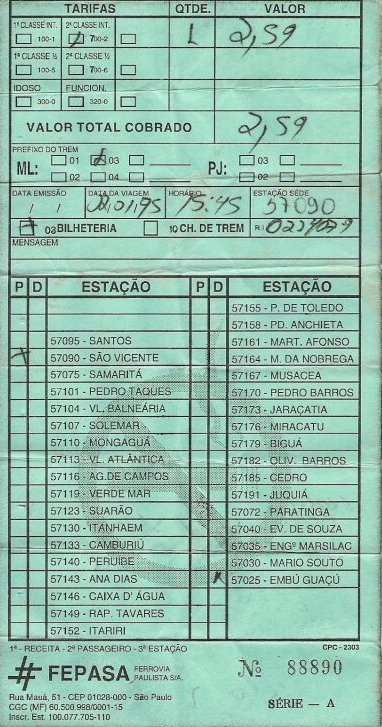 TARIFAS QTDE. VALOR
1ª CLASSE INT. 2ª CLASSE INT. L 2,59
100-1 700-2
1ª CLASSE ½ 2ª CLASSE ½
100-5 700-6
IDOSO FUNCION.
300-0 320-0
VALOR TOTAL COBRADO 2,59
PREFIXO DO TREM
ML: 01 03 PJ: 03
02 04 02
DATA EMISSÃO DATA DA VIAGEM HORÁRIO ESTAÇÃO SEDE
/ / 01,95 15:45 57090
03 BILHETERIA 10 CH. DE TREM R.I.
MENSAGEM
P D ESTAÇÃO P D ESTAÇÃO
57155 - P. DE TOLEDO
57158 - PD. ANCHIETA
57095 - SANTOS 57161 - MART. AFONSO
57090 - SÃO VICENTE 57164 - M. DA NOBREGA
57075 - SAMARITÁ 57167 - MUSACEA
57101 - PEDRO TAQUES 57170 - PEDRO BARROS
57104 - VL. BALNEÁRIA 57173 - JARAÇATIA
57107 - SOLEMAR 57176 - MIRACATU
57110 - MONGAGUÁ 57179 - BIGUÁ
57113 - VL. ATLÂNTICA 57182 - OLIV. BARROS
57116 - AG. DE CAMPOS 57185 - CEDRO
57119 - VERDE MAR 57191 - JUQUIÁ
57123 - SUARÃO 57072 - PARATINGA
57130 - ITANHAEM 57040 - EV. DE SOUZA
57133 - CAMBURIÚ 57035 - ENGº MARSILAC
57140 - PERUIBE 57030 - MARIO SOUTO
57143 - ANA DIAS 57025 - EMBÚ GUAÇÚ
57146 - CAIXA D' AGUA
57149 - RAP. TAVARES
57152 - ITARIRI
1ª - RECEITA - 2ª PASSAGEIRO - 3ª ESTAÇÃO CPC - 2303
FEPASA FERROVIA
PAULISTA S/A. Nº 88890
Rua Mauá, 51 - CEP 01028-000 - São Paulo
CGC (MF) 60.500.998/0001-15 SÉRIE - A
Inscr. Est. 100.077.705-110